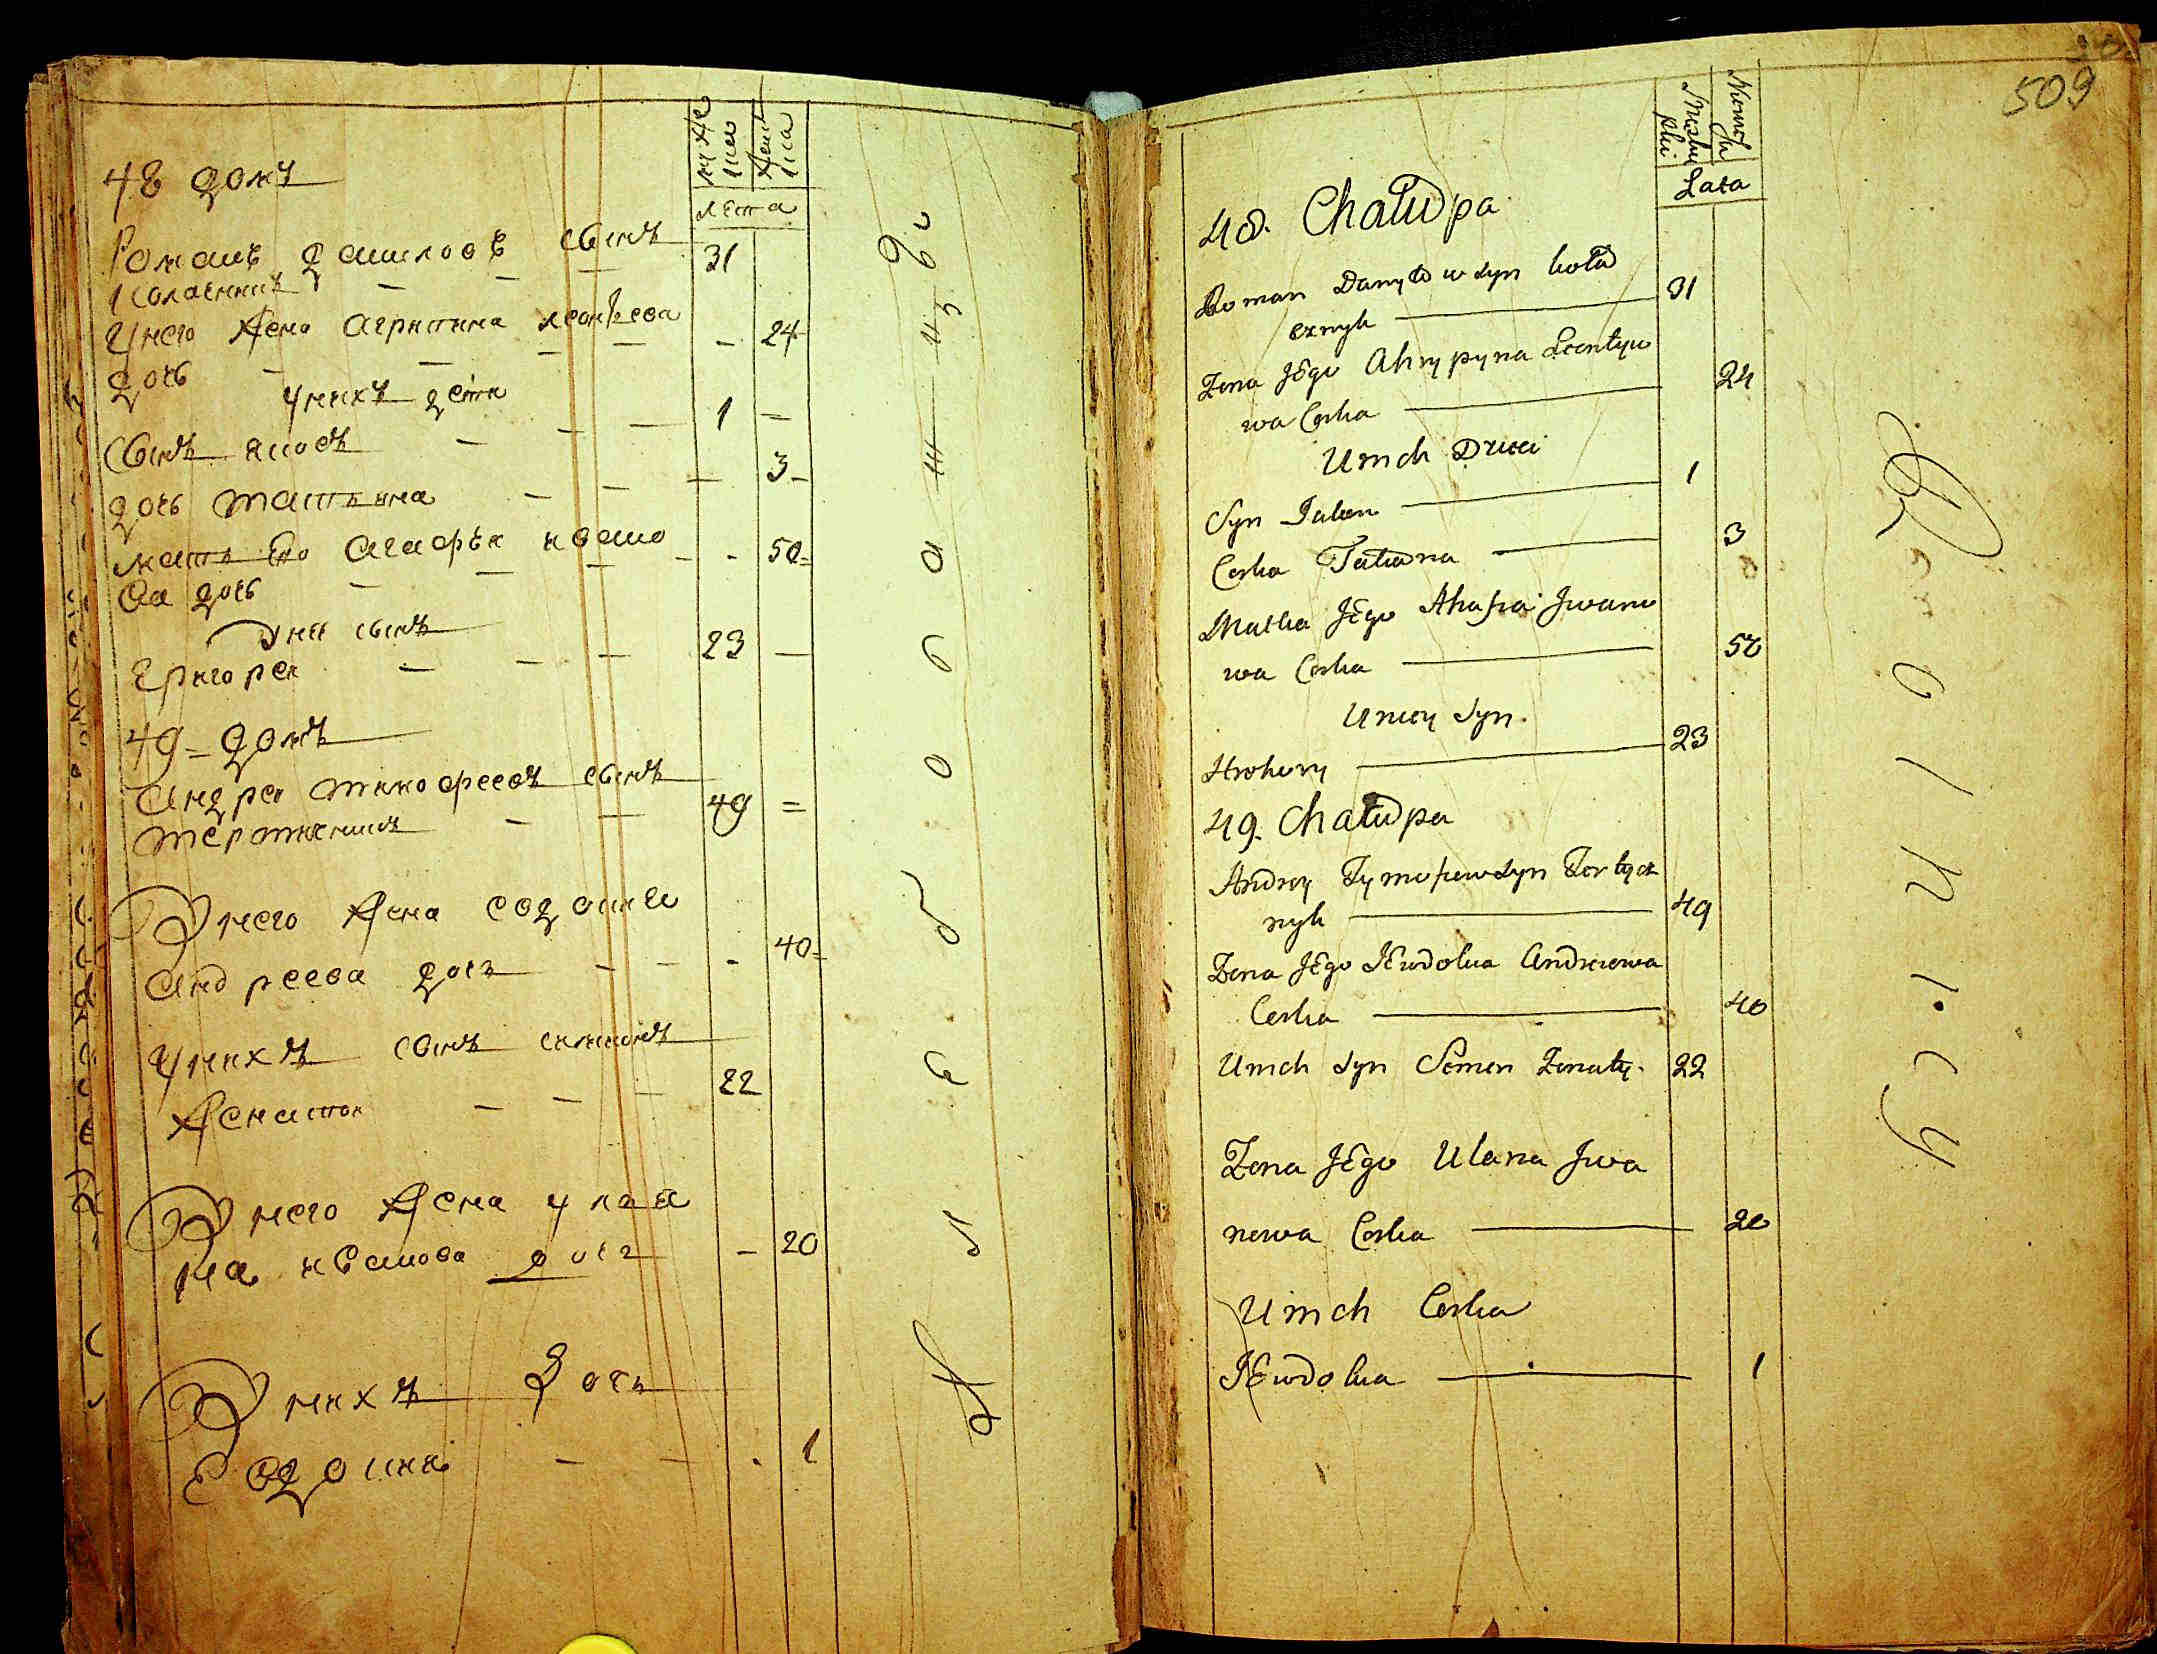 48 домъ
Романъ Даниловъ сынъ
Колачникъ 31
У него жена Агрипина Леонтеева
дочь 24
У нихъ дети
Сынъ Яковъ 1
дочь Татияна 3
мать Его Агафъя Ивано
ва дочь 50
У неи сынъ
Григореи 23
49 домъ
Андреи Тимофеевъ сынъ
Тертичникъ 49
У него жена Евдокия
Андреева дочь 40
У нихъ сынъ Симионъ
Женатои 22
У него жена Улая
на Иванова дочь 20
У нихъ дочь
Евдокия 1
лета
509
Lata
48. Chałupa
Roman Danyłow Syn Koła
cznyk 31
Zona JEgo Ahrypyna Leontyio
wa Corka 24
Unich Dzieci
Syn Jakow 1
Corka Tatiana 3
Matka JEgo Ahafia Jwano
wa Corka 50
Uniey Syn.
Hrohory 23
49. Chałupa
Andrey Tymofiew Syn Tertycz
nyk 49
Zona JEgo JEwdokia Andreiewa
Corka 40
Unich Syn Semen Zonaty. 22
Zona JEgo Ulana Jwa
nowa Corka 20
Unich Corka
JEwdokia 1